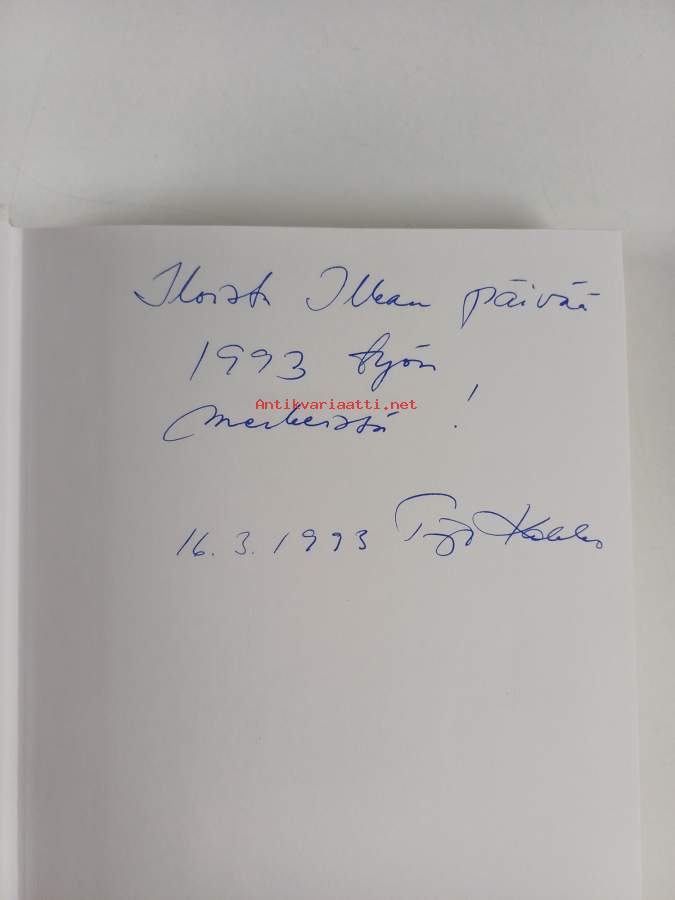 Iloista Ilkan päivää
1993 työn
Antikvariaatti.net
merkeissä !
16.3.1993